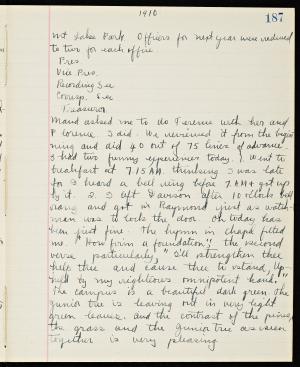 1910
187
Mt Lake Park. Officers for next year were reduced
to two for each office.
Pres.
Vice Pres.
Recording Sec
Corresp. Sec
Treasurer
Maud asked me to do Terence with her and
Florence. I did. We reviewed it from the begin
ning and did 40 out of 75 lines of advance.
I had two funny experiences today. 1. went to
breakfast at 7.15 A.M. thinking I was late
for I heard a bell ring before 7 AM & got up
by it. 2. I left Dawson after 10 o'clock bell
rang and got in Raymond just as watch
man was to lock the door. Oh today has
been just fine. The hymn in chapel fitted
me. "How firm a foundation", the second
verse particularly "I'll strengthen thee
help thee and cause thee to stand, Up-
held by my righteous omnipotent hand."
The campus is a beautiful dark green. The
junior tree is leaving out in very light
green leaves. and the contrast of the pines,
the grass and the junior tree as seen
together is very pleasing